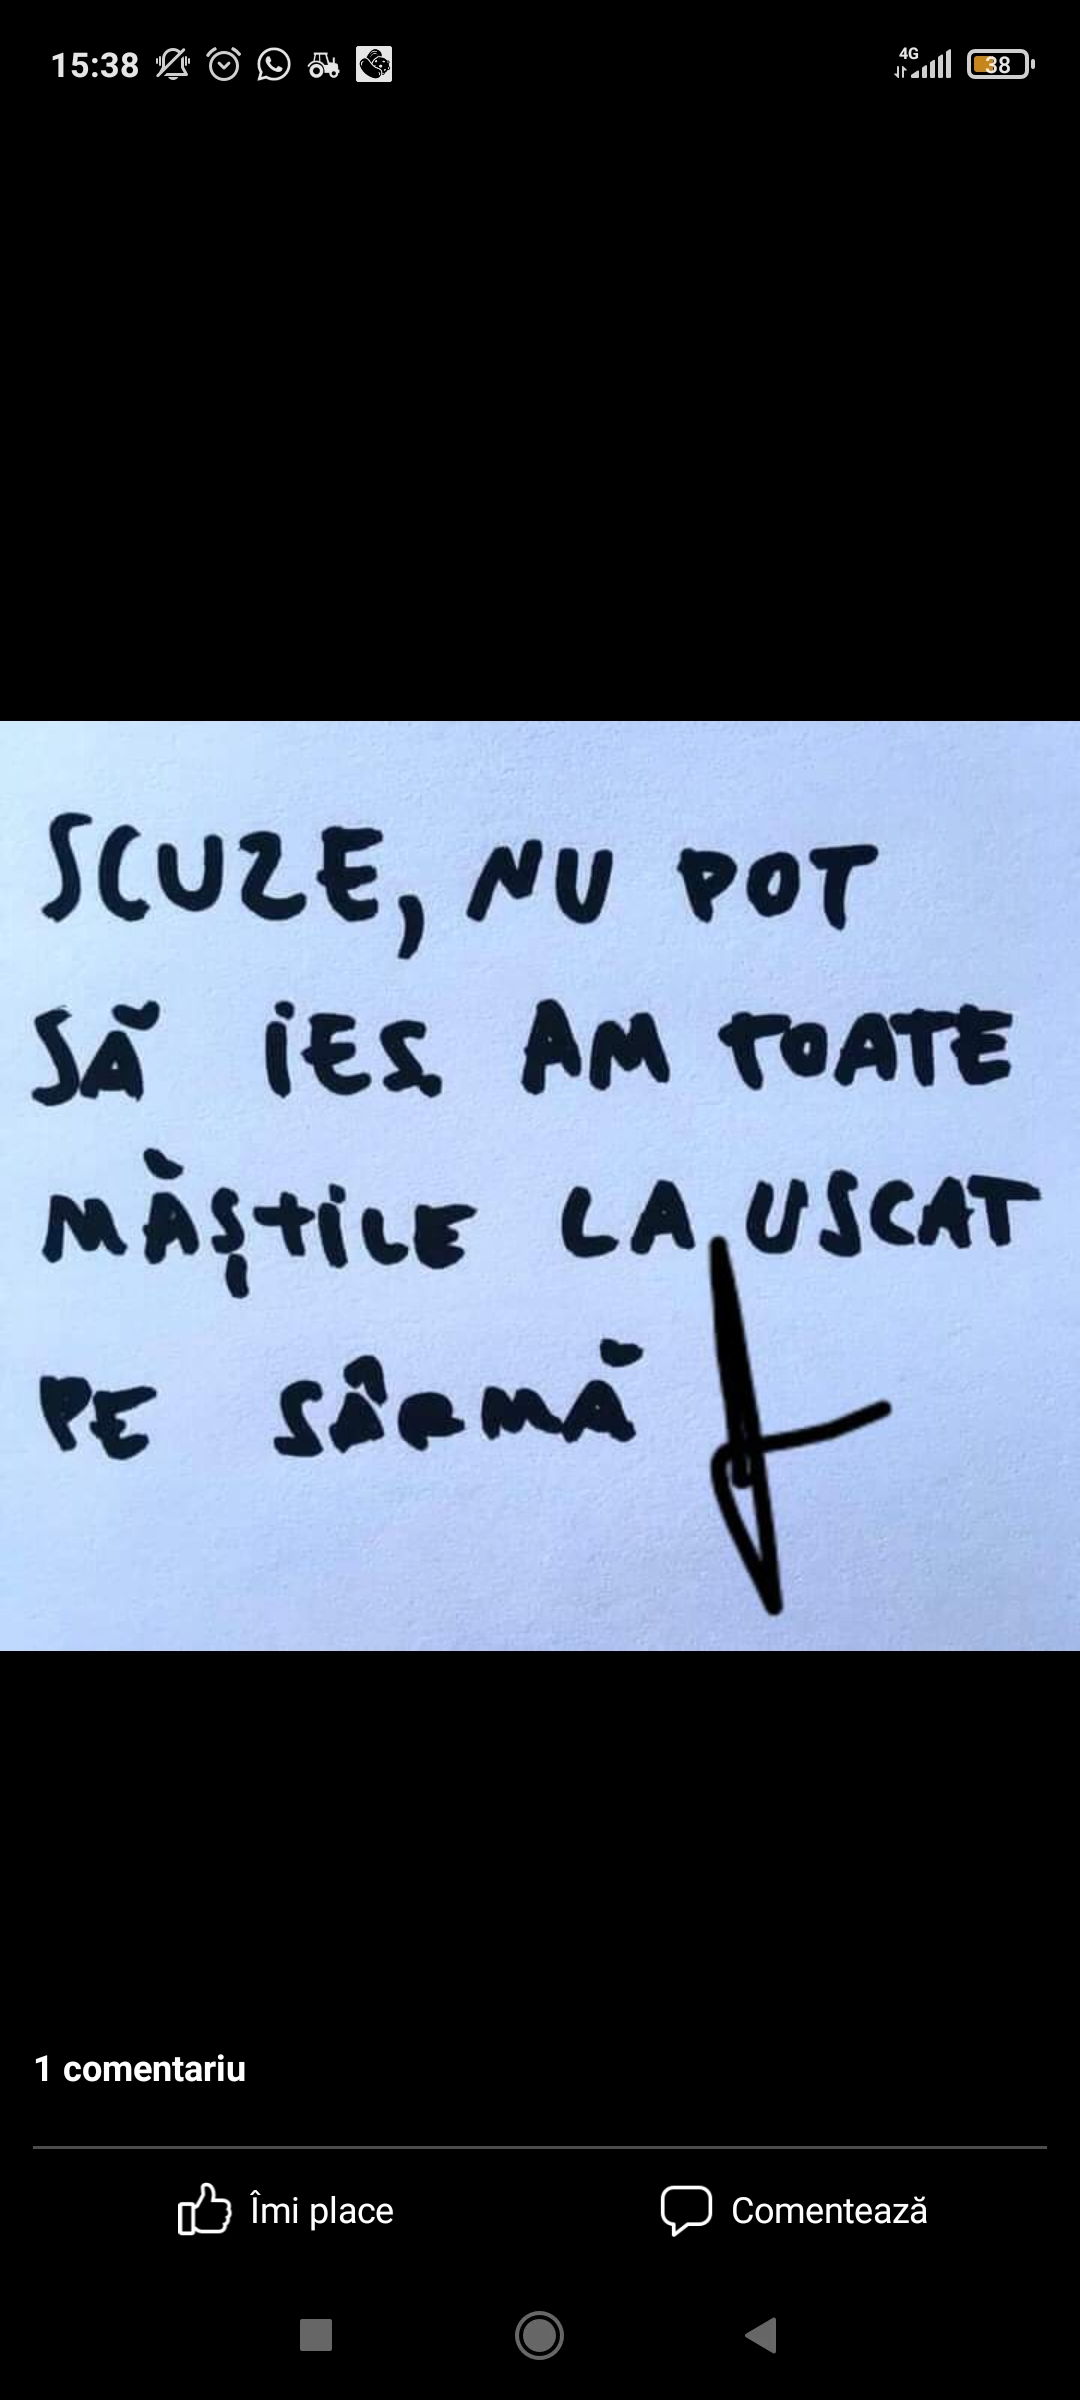 15:38
4G
38
SCUZE, NU POT
SĂ IES AM TOATE
MĂȘTILE LA USCAT
PE SÂRMĂ
1 comentariu
Îmi place
Comentează